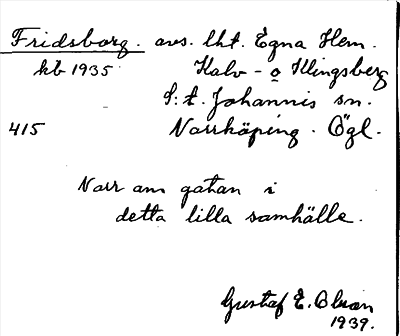 Fridsborg. avs. lht. Egna Hem.
kb 1935 Halv- o Klingsberg
S:t. Johannis sn.
415 Norrköping. Ögl.
Norr om gatan i
detta lilla samhälle.
Gustaf E. Olson
1939.